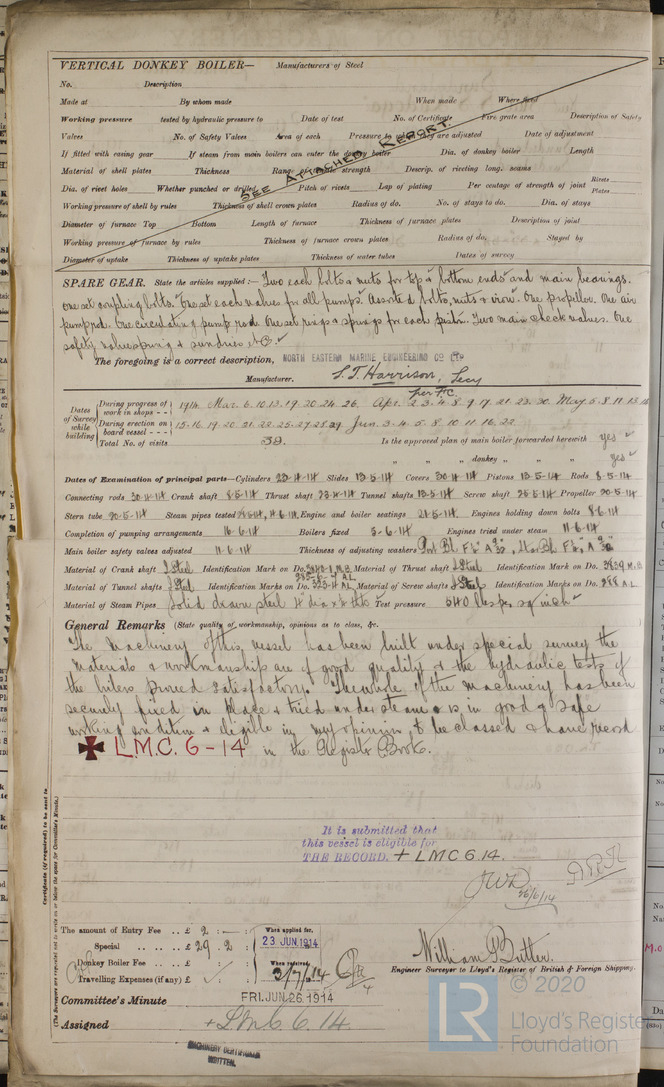 VERTICAL DONKEY BOILER— Manufacturers of Steel
No. Description
Made at By whom made When made Where fixed
Working pressure tested by hydraulic pressure to Date of test No. of Certificate Fire grate area Description of Safety
Valves No. of Safety Valves Area of each Pressure to which they are adjusted Date of adjustment
If fitted with easing gear If steam from main boilers can enter the donkey boiler Dia. of donkey boiler Length
Material of shell plates Thickness Range of tensile strength Descrip. of riveting long. seams
Dia. of rivet holes Whether punched or drilled Pitch of rivets Lap of plating Per centage of strength of joint Rivets Plates
SEE ATTACHED REPORT.
Working pressure of shell by rules Thickness of shell crown plates Radius of do. No. of stays to do. Dia. of stays
Diameter of furnace Top Bottom Length of furnace Thickness of furnace plates Description of joint
Working pressure of furnace by rules Thickness of furnace crown plates Radius of do. Stayed by
Diameter of uptake Thickness of uptake plates Thickness of water tubes Dates of survey
SPARE GEAR. State the articles supplied:— Two each bolts & nuts for top & bottom ends and main bearings.
One set coupling bolts. One set each valves for all pumps. Assorted bolts, nuts & iron. One propellor. One air
pump rod. One circulating pump rod. One set rings & springs for each piston. Two main check valves. One
safety valve spring & sundries etc.
The foregoing is a correct description, NORTH EASTERN MARINE ENGINEERING CO LTD
Manufacturer. S.T. Harrison, Secy
per
Dates of Survey while building
During progress of work in shops - - 1914 Mar. 6. 10. 13. 19. 20. 24. 26. Apr. 2 3. 4. 8. 9. 17. 21 23. 30. May 5. 8. 11. 13
During erection on board vessel - - - 15. 16. 19. 20. 21. 22. 25. 27. 28. 29. Jun. 3. 4. 5. 8. 10. 11. 16. 22
Total No. of visits 39. Is the approved plan of main boiler forwarded herewith yes
" " " donkey " " yes
Dates of Examination of principal parts—Cylinders Slides 13-5-14 Covers 30-4-14 Pistons 13-5-14 Rods 8-5-14
Connecting rods 30-4-14 Crank shaft 8-5-14 Thrust shaft Tunnel shafts 13-5-14 Screw shaft 25-5-14 Propeller 20-5-14
Stern tube 20-5-14 Steam pipes tested Engine and boiler seatings 21-5-14 Engines holding down bolts 8-6-14
Completion of pumping arrangements 16-6-14 Boilers fixed 5-6-14 Engines tried under steam 11-6-14
Main boiler safety valves adjusted 11-6-14 Thickness of adjusting washers
Material of Crank shaft I Steel Identification Mark on Do. Material of Thrust shaft I Steel Identification Mark on Do.
Material of Tunnel shafts I Steel Identification Marks on Do. Material of Screw shafts I Steel Identification Marks on Do. 288 A.L
Material of Steam Pipes Solid drawn steel Test pressure 540 lbs per sq inch
General Remarks (State quality of workmanship, opinions as to class, &c.
The Machinery of this vessel has been built under special survey the
materials & workmanship are of good quality & the hydraulic tests of
the boilers proved satisfactory. The whole of the machinery has been
securely fixed in place & tried under steam & is in good & safe
working condition & eligible in my opinion to be classed & have record
L.M.C. 6-14 in the Register Book.
It is submitted that
this vessel is eligible for
THE RECORD. + LMC 6.14.
JWD
26/6/14
Certificate (if required) to be sent to
(The Surveyors are requested not to write on or below the space for Committee's Minute.)
The amount of Entry Fee .. £ 2 : — : When applied for,
Special .. .. .. £ 29 . 2 : 23 JUN 1914
Donkey Boiler Fee .. .. £ : : When received,
Travelling Expenses (if any) £ : : 3/7/14
William Butler.
Engineer Surveyor to Lloyd's Register of British & Foreign Shipping.
Committee's Minute FRI. JUN. 26. 1914
Assigned + LMC 6.14
MACHINERY CERTIFICATE
WRITTEN.
© 2020
LR
Lloyd's Register
Foundation